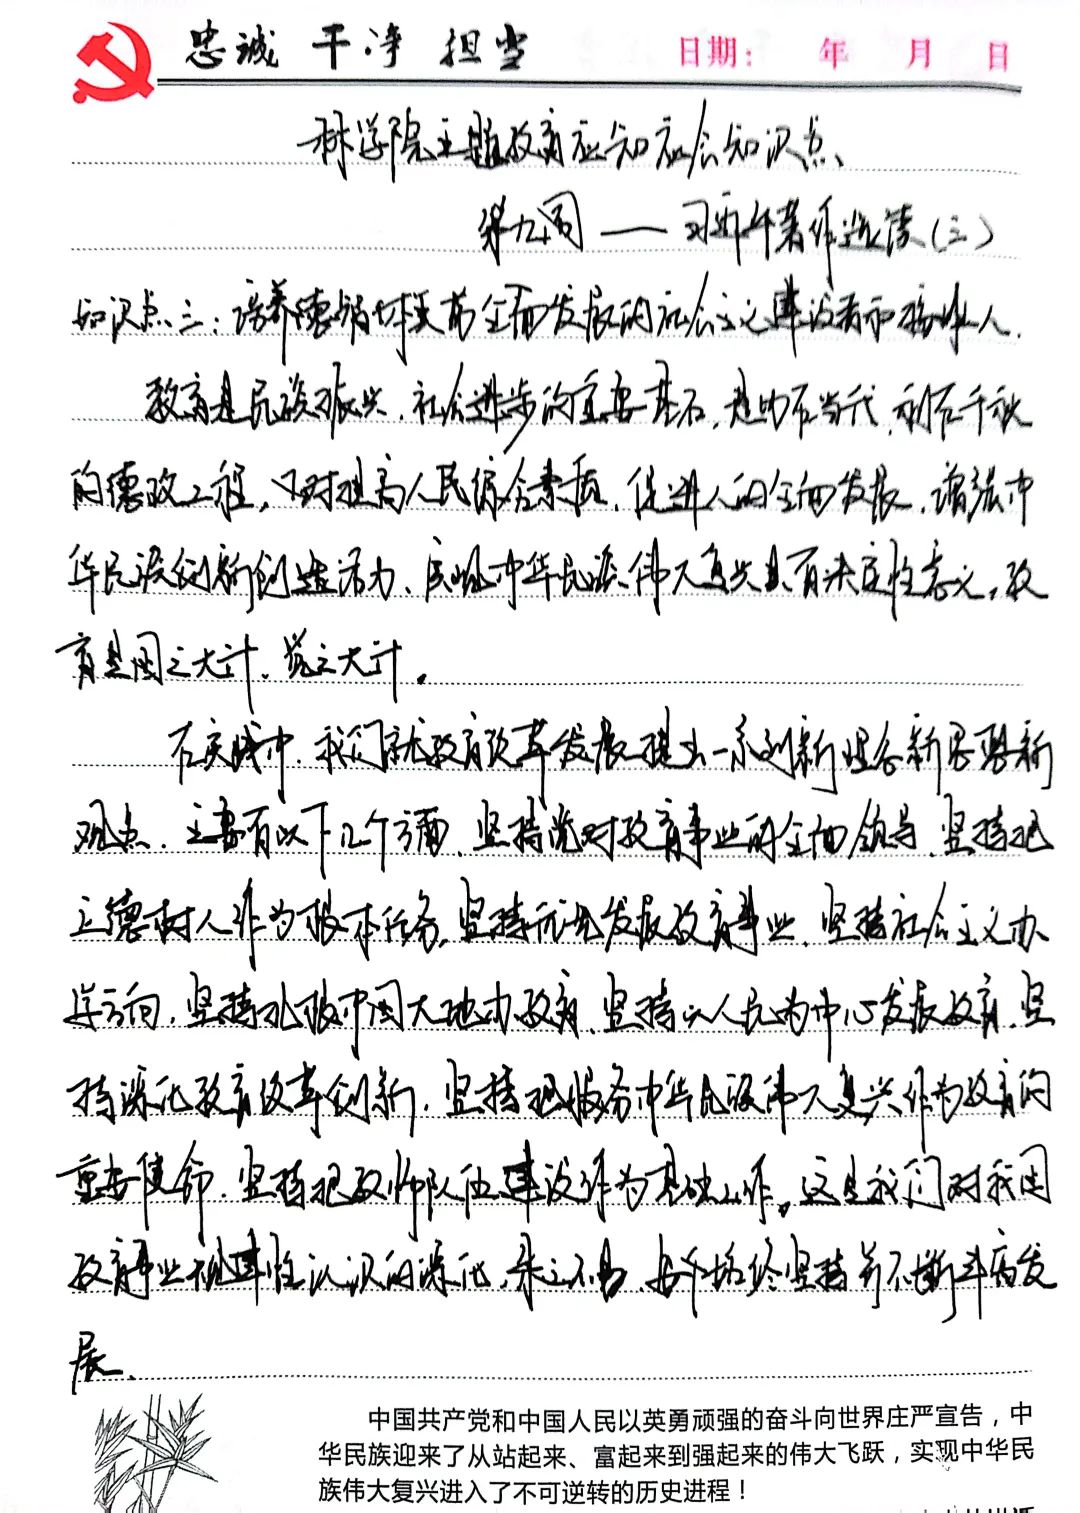 忠诚 干净 担当 日期： 年 月 日
林学院主题教育应知应会知识点
第九周——习近平著作选读(三)
知识点三：培养德智体美劳全面发展的社会主义建设者和接班人.
教育是民族振兴、社会进步的重要基石,是功在当代,利在千秋
的德政工程,对提高人民综合素质,促进人的全面发展,增强中
华民族创新创造活力、实现中华民族伟大复兴具有决定性意义。教
育是国之大计、党之大计。
在实践中,我们就教育改革发展提出一系列新理念新思想新
观点,主要有以下几个方面、坚持党对教育事业的全面领导、坚持把
立德树人作为根本任务,坚持优先发展教育事业、坚持社会主义办
学方向,坚持扎根中国大地办教育、坚持以人民为中心发展教育,坚
持深化教育改革创新,坚持把服务中华民族伟大复兴作为教育的
重要使命,坚持把教师队伍建设作为基础工作。这是我们对我国
教育事业规律性认识的深化,来之不易,要始终坚持并不断丰富发
展.
中国共产党和中国人民以英勇顽强的奋斗向世界庄严宣告，中
华民族迎来了从站起来、富起来到强起来的伟大飞跃，实现中华民
族伟大复兴进入了不可逆转的历史进程！